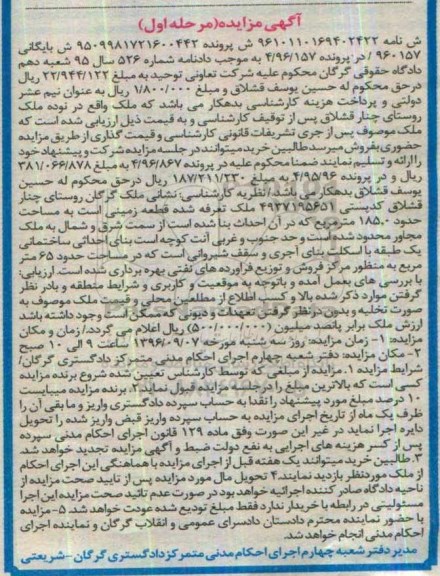 آگهی مزایده (مرحله اول)
ش نامه ۹۶۱۰۱۱۰۱۶۹۴۰۲۴۲۲ ش پرونده ۹۵۰۹۹۸۱۷۲۱۶۰۰۴۴۲ ش بایگانی
۹۶۰۱۵۷ / در پرونده ۴/۹۶/۱۵۷ به موجب دادنامه شماره ۵۲۶ سال ۹۵ شعبه دهم
دادگاه حقوقی گرگان محکوم علیه شرکت تعاونی توحید به مبلغ ۲۲/۹۴۴/۱۲۲ ریال
درحق محکوم له حسین یوسف قشلاق و مبلغ ۱/۸۰۰/۰۰۰ ریال به عنوان نیم عشر
دولتی و پرداخت هزینه کارشناسی بدهکار می باشد که ملک واقع در نوده ملک
روستای چنار قشلاق پس از توقیف کارشناسی و به قیمت ذیل ارزیابی شده است که
ملک موصوف پس از جری تشریفات قانونی کارشناسی و قیمت گذاری از طریق مزایده
حضوری بفروش میرسد طالبین خرید میتوانند در جلسه مزایده شرکت و پیشنهاد خود
را ارائه و تسلیم نمایند ضمنا محکوم علیه در پرونده ۴/۹۶/۸۶۷ به مبلغ ۳۸۱/۰۶۶/۸۷۸
ریال و در پرونده ۴/۹۵/۹۶ به مبلغ ۱۸۷/۲۱۱/۲۳۰ ریال درحق محکوم له حسین
یوسف قشلاق بدهکار می باشد / نظریه کارشناسی: نشانی ملک گرگان روستای چنار
قشلاق کدپستی ۴۹۳۷۱۹۵۶۵۱ ملک تعرفه شده قطعه زمینی است به مساحت
حدود ۱۸۵.۰ مترمربع که در آن احداث بنا شده است از سمت شرق و شمال به ملک
مجاور محدود شده است و حد جنوب و غربی آنت کوچه است بنای احداثی ساختمانی
یک طبقه با اسکلت بنای آجری و سقف شیروانی است که در مساحت حدود ۶۵ متر
مربع به منظور مرکز فروش و توزیع فرآورده های نفتی بهره برداری شده است. ارزیابی:
با بررسی های بعمل آمده و باتوجه به موقعیت و کاربری و شرایط منطقه و بادر نظر
گرفتن موارد ذکر شده بالا و کسب اطلاع از مطلعین محلی و قیمت ملک موصوف به
صورت تخلیه و بدون در نظر گرفتن تعهدات و دیونی که ممکن است وجود داشته باشد
ارزش ملک برابر پانصد میلیون (۵۰۰/۰۰۰/۰۰۰) ریال اعلام می گردد./ زمان و مکان
مزایده: ۱- زمان مزایده: روز سه شنبه مورخه ۱۳۹۶/۰۹/۰۷ ساعت ۹ الی ۱۰ صبح
۲- مکان مزایده: دفتر شعبه چهارم اجرای احکام مدنی متمرکز دادگستری گرگان/
شرایط مزایده ۱. مزایده از مبلغی که توسط کارشناس تعیین شده شروع برنده مزایده
کسی است که بالاترین مبلغ را درجلسه مزایده قبول نماید ۲. برنده مزایده میبایست
۱۰ درصد مبلغ مورد پیشنهاد را نقدا به حساب سپرده دادگستری واریز و ما بقی آن را
ظرف یک ماه از تاریخ اجرای مزایده به حساب سپرده واریز قبض واریز شده را تحویل
دایره اجرا نماید در غیر این صورت وفق ماده ۱۲۹ قانون اجرای احکام مدنی سپرده
پس از کسر هزینه های اجرایی به نفع دولت ضبط و آگهی مزایده تجدید خواهد شد
۳. طالبین خرید میتوانند یک هفته قبل از اجرای مزایده با هماهنگی این اجرای احکام
از ملک موردنظر بازدید نمایند ۴. تحویل مال مورد مزایده پس از تایید صحت مزایده از
ناحیه دادگاه صادر کننده اجرائیه خواهد بود در صورت عدم تائید صحت مزایده این اجرا
مسئولیتی در رابطه با خریدار ندارد فقط مبلغ تودیع شده عودت خواهد شد. ۵- مزایده
با حضور نماینده محترم دادستان دادسرای عمومی و انقلاب گرگان و نماینده اجرای
احکام مدنی انجام خواهد شد.
مدیر دفتر شعبه چهارم اجرای احکام مدنی متمرکز دادگستری گرگان - شریعتی